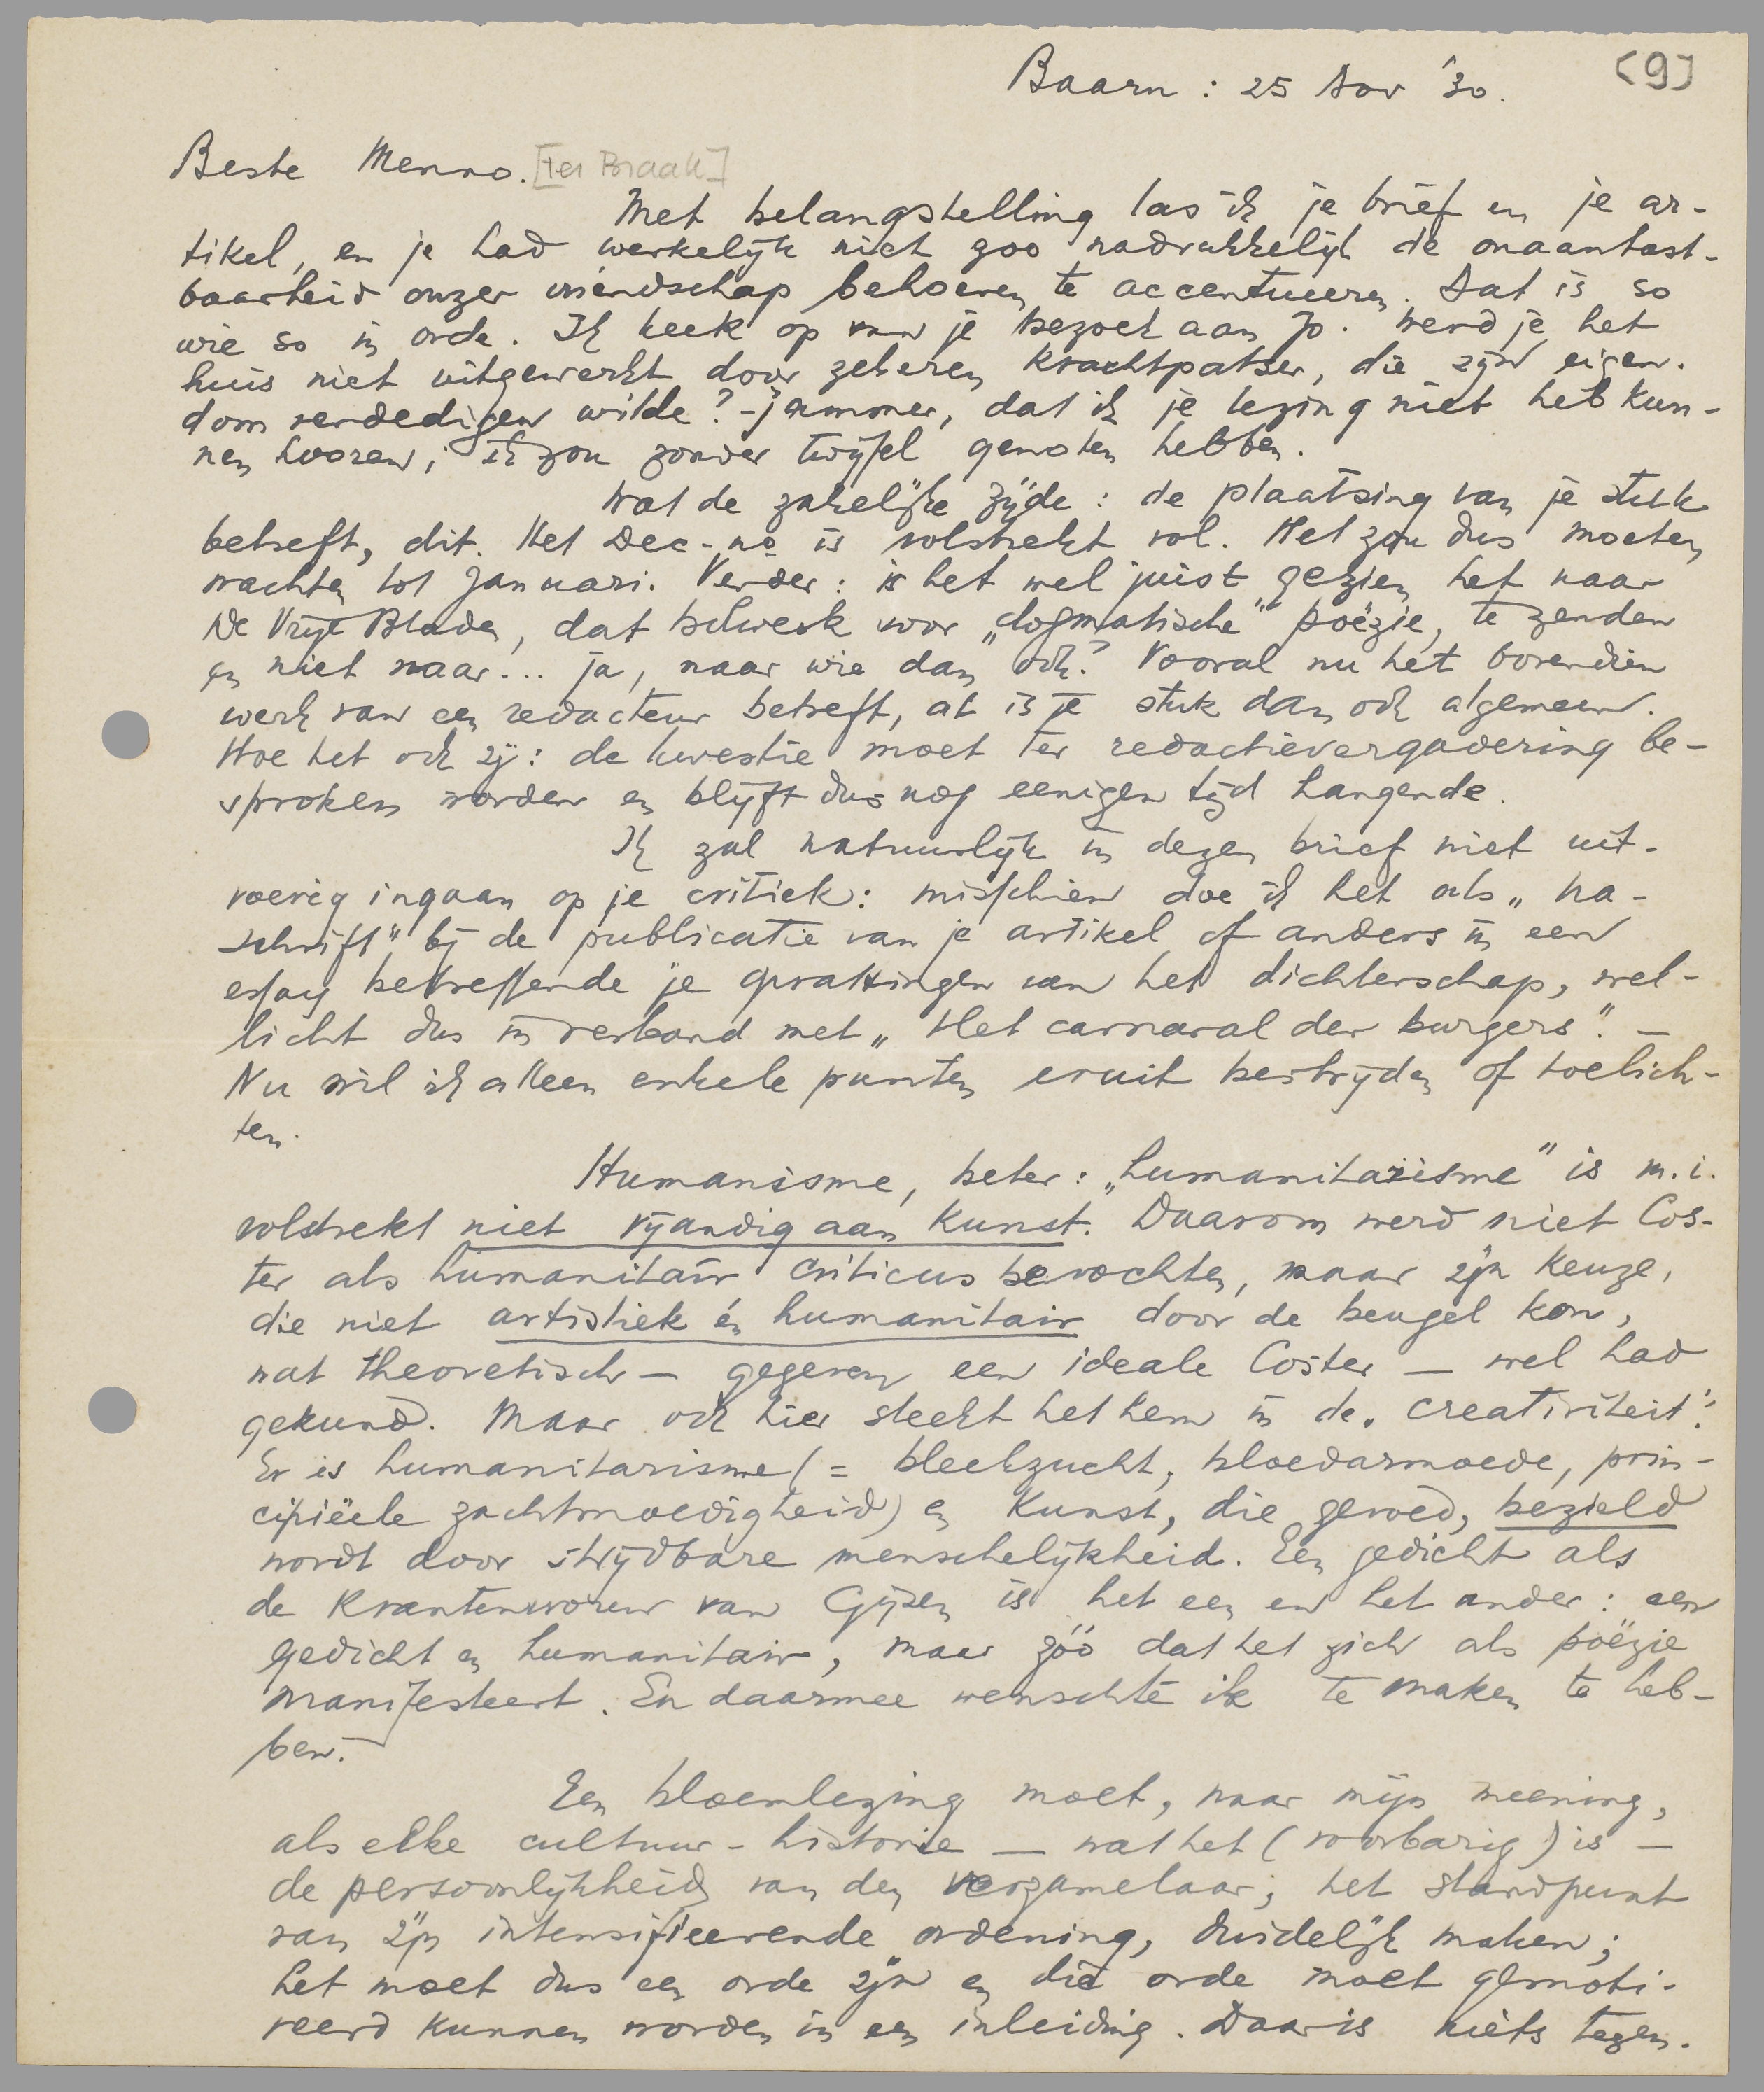 Baarn : 25 Nov '30. [9]
Beste Menno. [ter Braak]
Met belangstelling las ik je brief en je ar-
tikel, en je had werkelijk niet zoo nadrukkelijk de onaantast-
baarheid onzer vriendschap behoeven te accentueeren. Dat is so
wie so in orde. Ik keek op van je bezoek aan Jo. Werd je het
huis niet uitgewerkt door zekeren krachtpatser, die zijn eigen-
dom verdedigen wilde? - Jammer, dat ik je lezing niet heb kun-
nen hooren; ik zou zonder twijfel genoten hebben.
Wat de zakelijke zijde: de plaatsing van je stuk
betreft, dit. Het Dec-no is volstrekt vol. Het zou dus moeten
wachten tot Januari. Verder: is het wel juist gezien het naar
De Vrije Bladen, dat bolwerk voor „dogmatische" poëzie, te zenden
en niet naar... ja, naar wie dan ook? Vooral nu het bovendien
werk van een redacteur betreft, at is je stuk dan ook algemeen.
Hoe het ook zij: de kwestie moet ter redactievergadering be-
sproken worden en blijft dus nog eenigen tijd hangende.
Ik zal natuurlijk in dezen brief niet uit-
voerig ingaan op je critiek: misschien doe ik het als „na-
schrift" bij de publicatie van je artikel of anders in een
essay betreffende je opvattingen van het dichterschap, wel-
licht dus in verband met „Het carnaval der burgers". —
Nu wil ik alleen enkele punten eruit bestrijden of toelich-
ten.
Humanisme, beter: „humanitarisme" is m.i.
volstrekt niet vijandig aan kunst. Daarom werd niet Cos-
ter als humanitair criticus bevochten, maar zijn keuze,
die niet artistiek én humanitair door de beugel kon,
wat theoretisch — gegeven een ideale Coster — wel had
gekund. Maar ook hier steekt het hem in de „creativiteit".
Er is humanitarisme (= bleekzucht, bloedarmoede, prin-
cipiëele zachtmoedigheid) en kunst, die gevoed, bezield
wordt door strijdbare menschelijkheid. Een gedicht als
de Krantenvrouw van Gijsen is het een en het ander: een
gedicht en humanitair, maar zóó dat het zich als poëzie
manifesteert. En daarmee wenschte ik te maken te heb-
ben.
Een bloemlezing moet, naar mijn meening,
als elke cultuur-historie — wat het (voorbarig) is —
de persoonlijkheid van den verzamelaar; het standpunt
van zijn intensifieerende ordening, duidelijk maken;
het moet dus een orde zijn en die orde moet gemoti-
veerd kunnen worden in een inleiding. Daar is niets tegen.